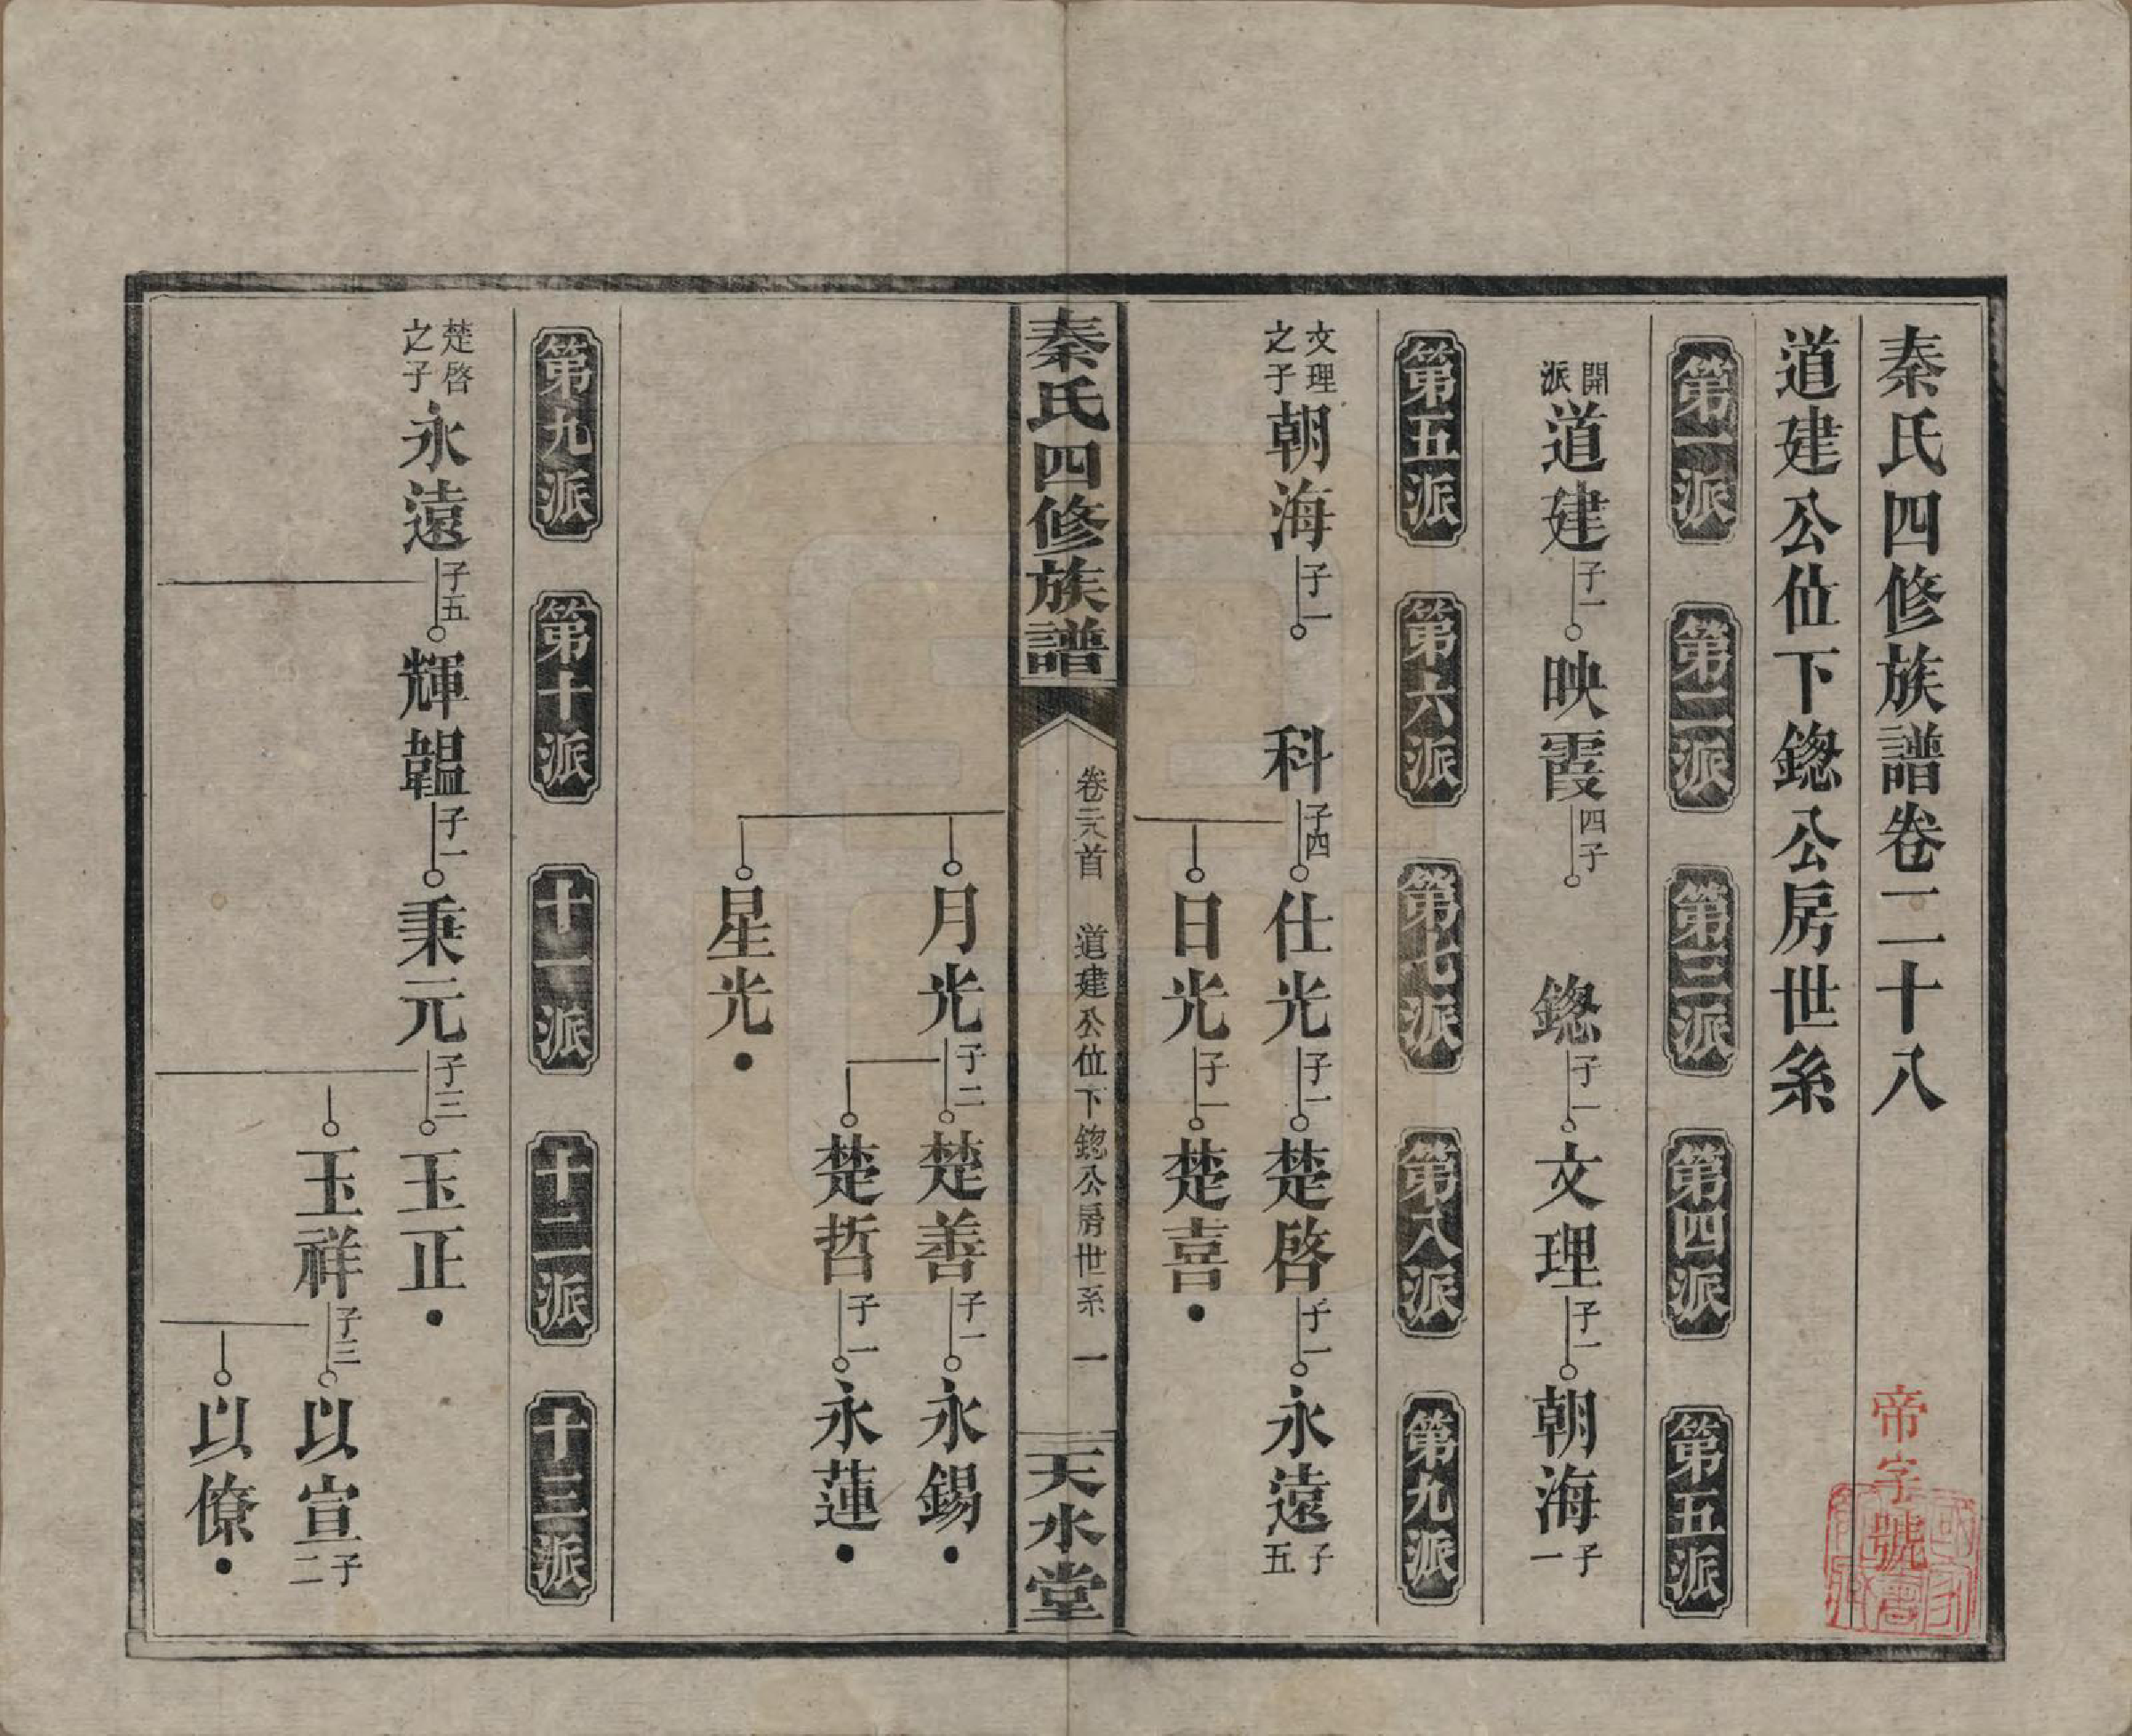 秦氏四修族譜卷二十八
帝字號
道建公位下鍯公房世系
第一派 第二派 第三派 第四派 第五派
開派 道建 子一 映霞 四子 鍯 子一 文理 子一 朝海 子一
第五派 第六派 第七派 第八派 第九派
文理之子 朝海 子一 科 子四 仕光 子一 楚啓 子一 永遠 子五
日光 子一 楚喜
秦氏四修族譜 卷二十八首 道建公位下鍯公房世系 一 天水堂
月光 子二 楚善 子一 永錫
楚哲 子一 永蓮
星光
第九派 第十派 十一派 十二派 十三派
楚啓之子 永遠 子五 輝韞 子一 秉元 子三 玉正
玉祥 子三 以宣 子二
以僚